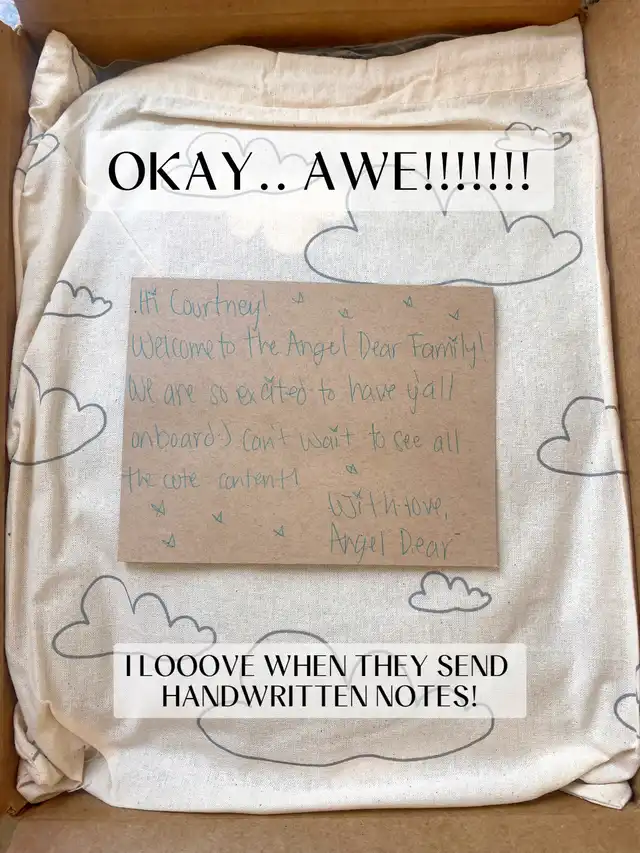 OKAY.. AWE!!!!!!!
Hi Courtney!
Welcome to the Angel Dear Family!
We are so excited to have y'all
onboard:) Can't wait to see all
the cute content!
With love,
Angel Dear
I LOOOVE WHEN THEY SEND
HANDWRITTEN NOTES!